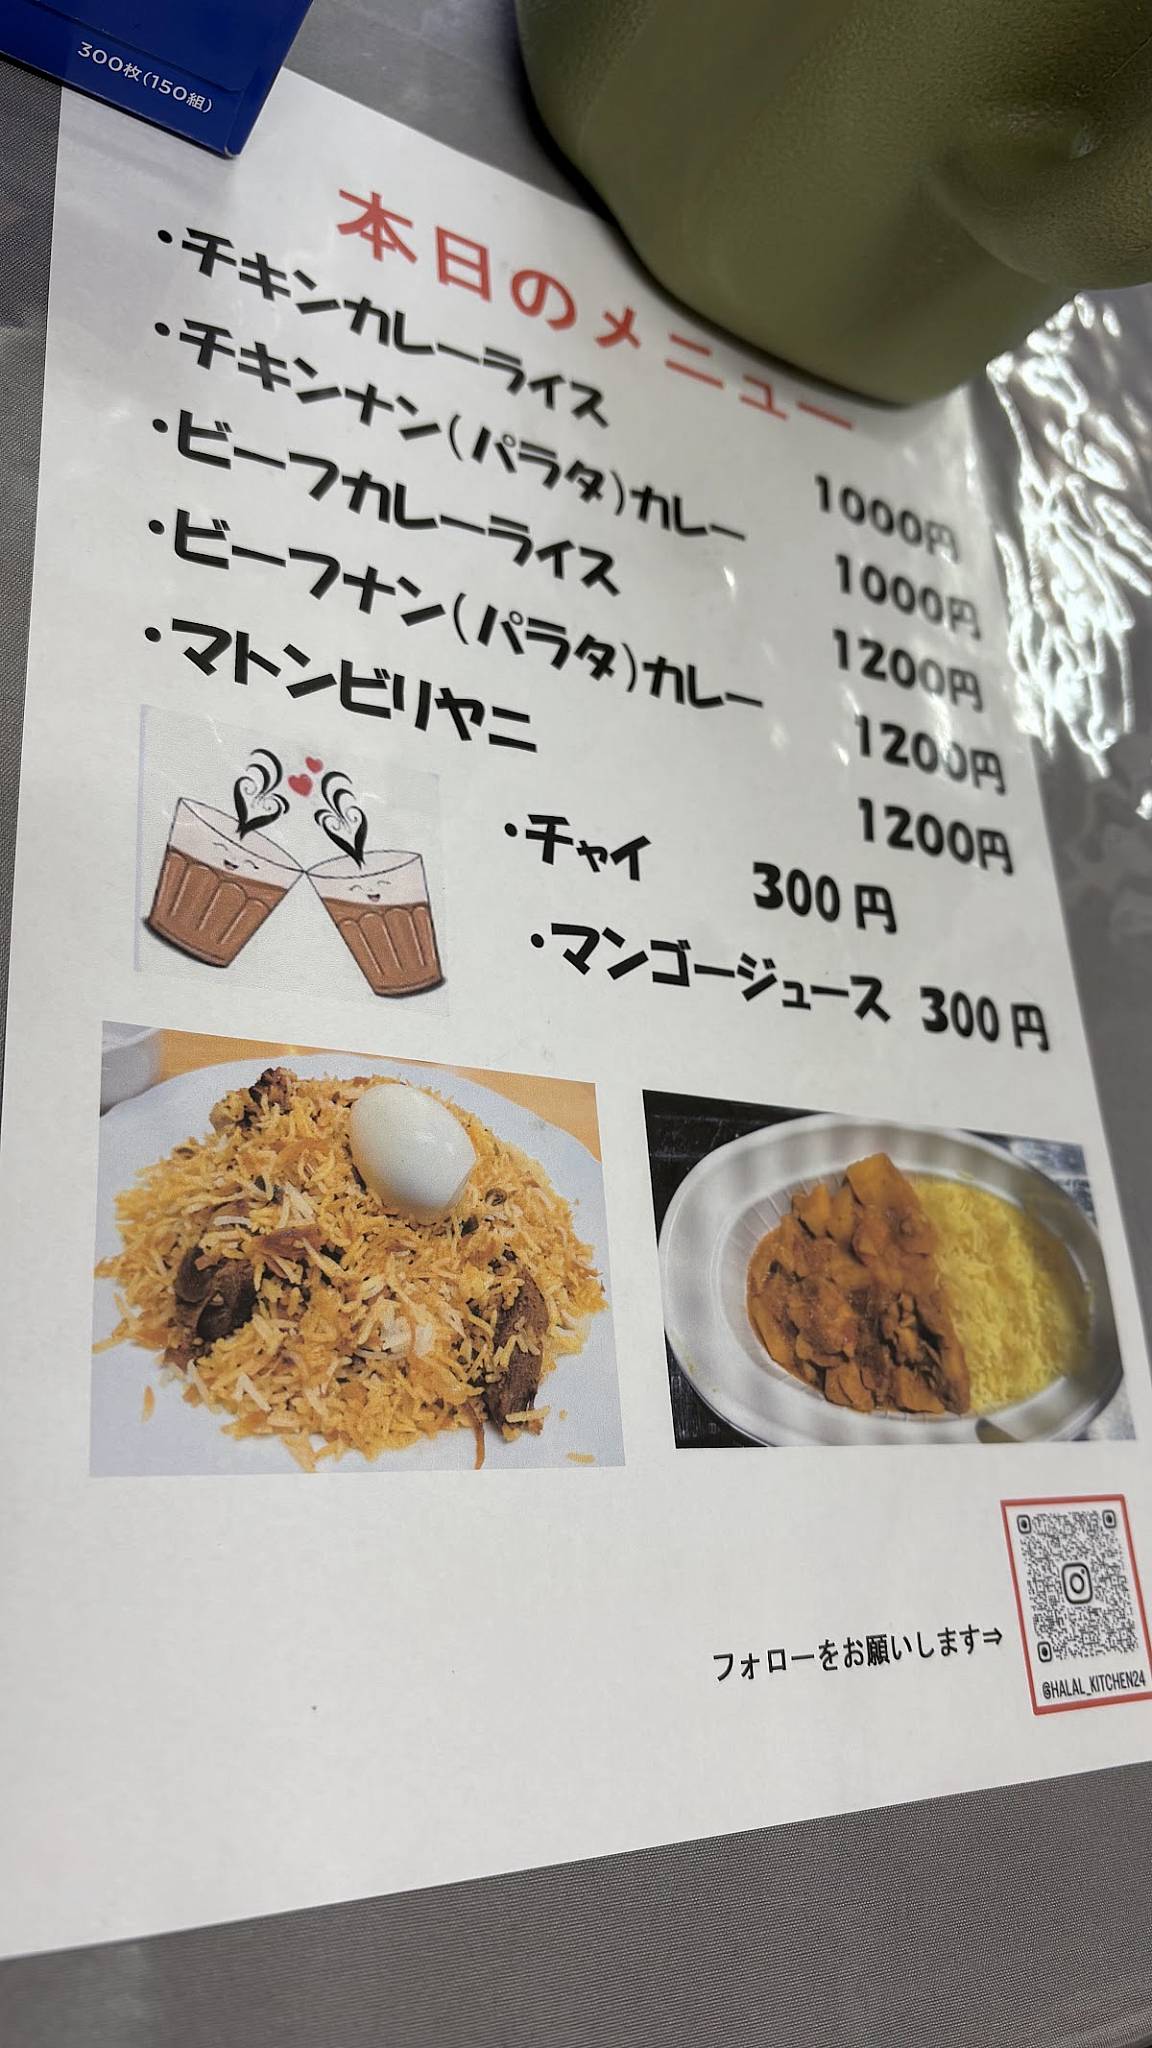 300枚(150組)
本日のメニュー
・チキンカレーライス 1000円
・チキンナン(パラタ)カレー 1000円
・ビーフカレーライス 1200円
・ビーフナン(パラタ)カレー 1200円
・マトンビリヤニ 1200円
・チャイ 300円
・マンゴージュース 300円
フォローをお願いします⇒
@HALAL_KITCHEN24